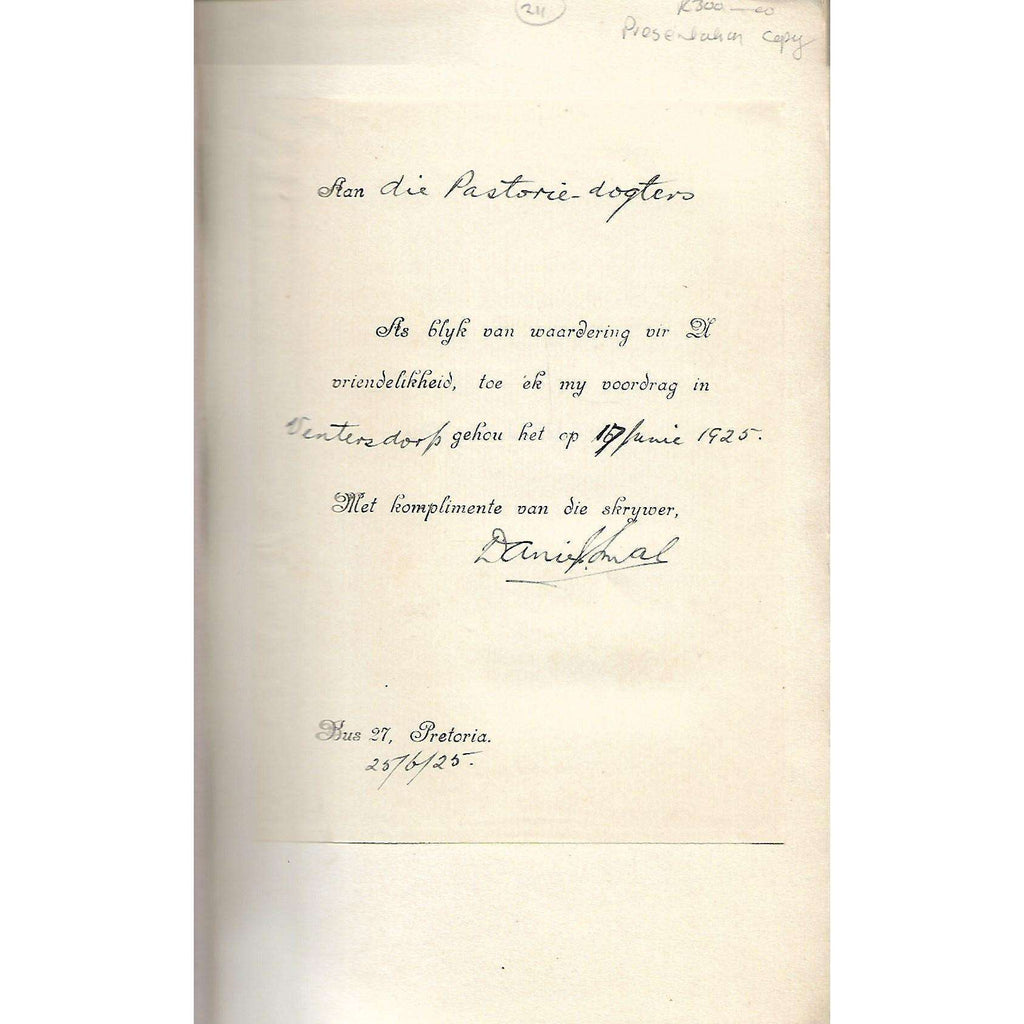 211
R300—00
Presentation copy
Aan die Pastorie-dogters
As blyk van waardering vir U
vriendelikheid, toe ek my voordrag in
Ventersdorp gehou het op 17/Junie 1925.
Met komplimente van die skrywer,
Daniel Smal
Bus 27, Pretoria.
25/6/25.